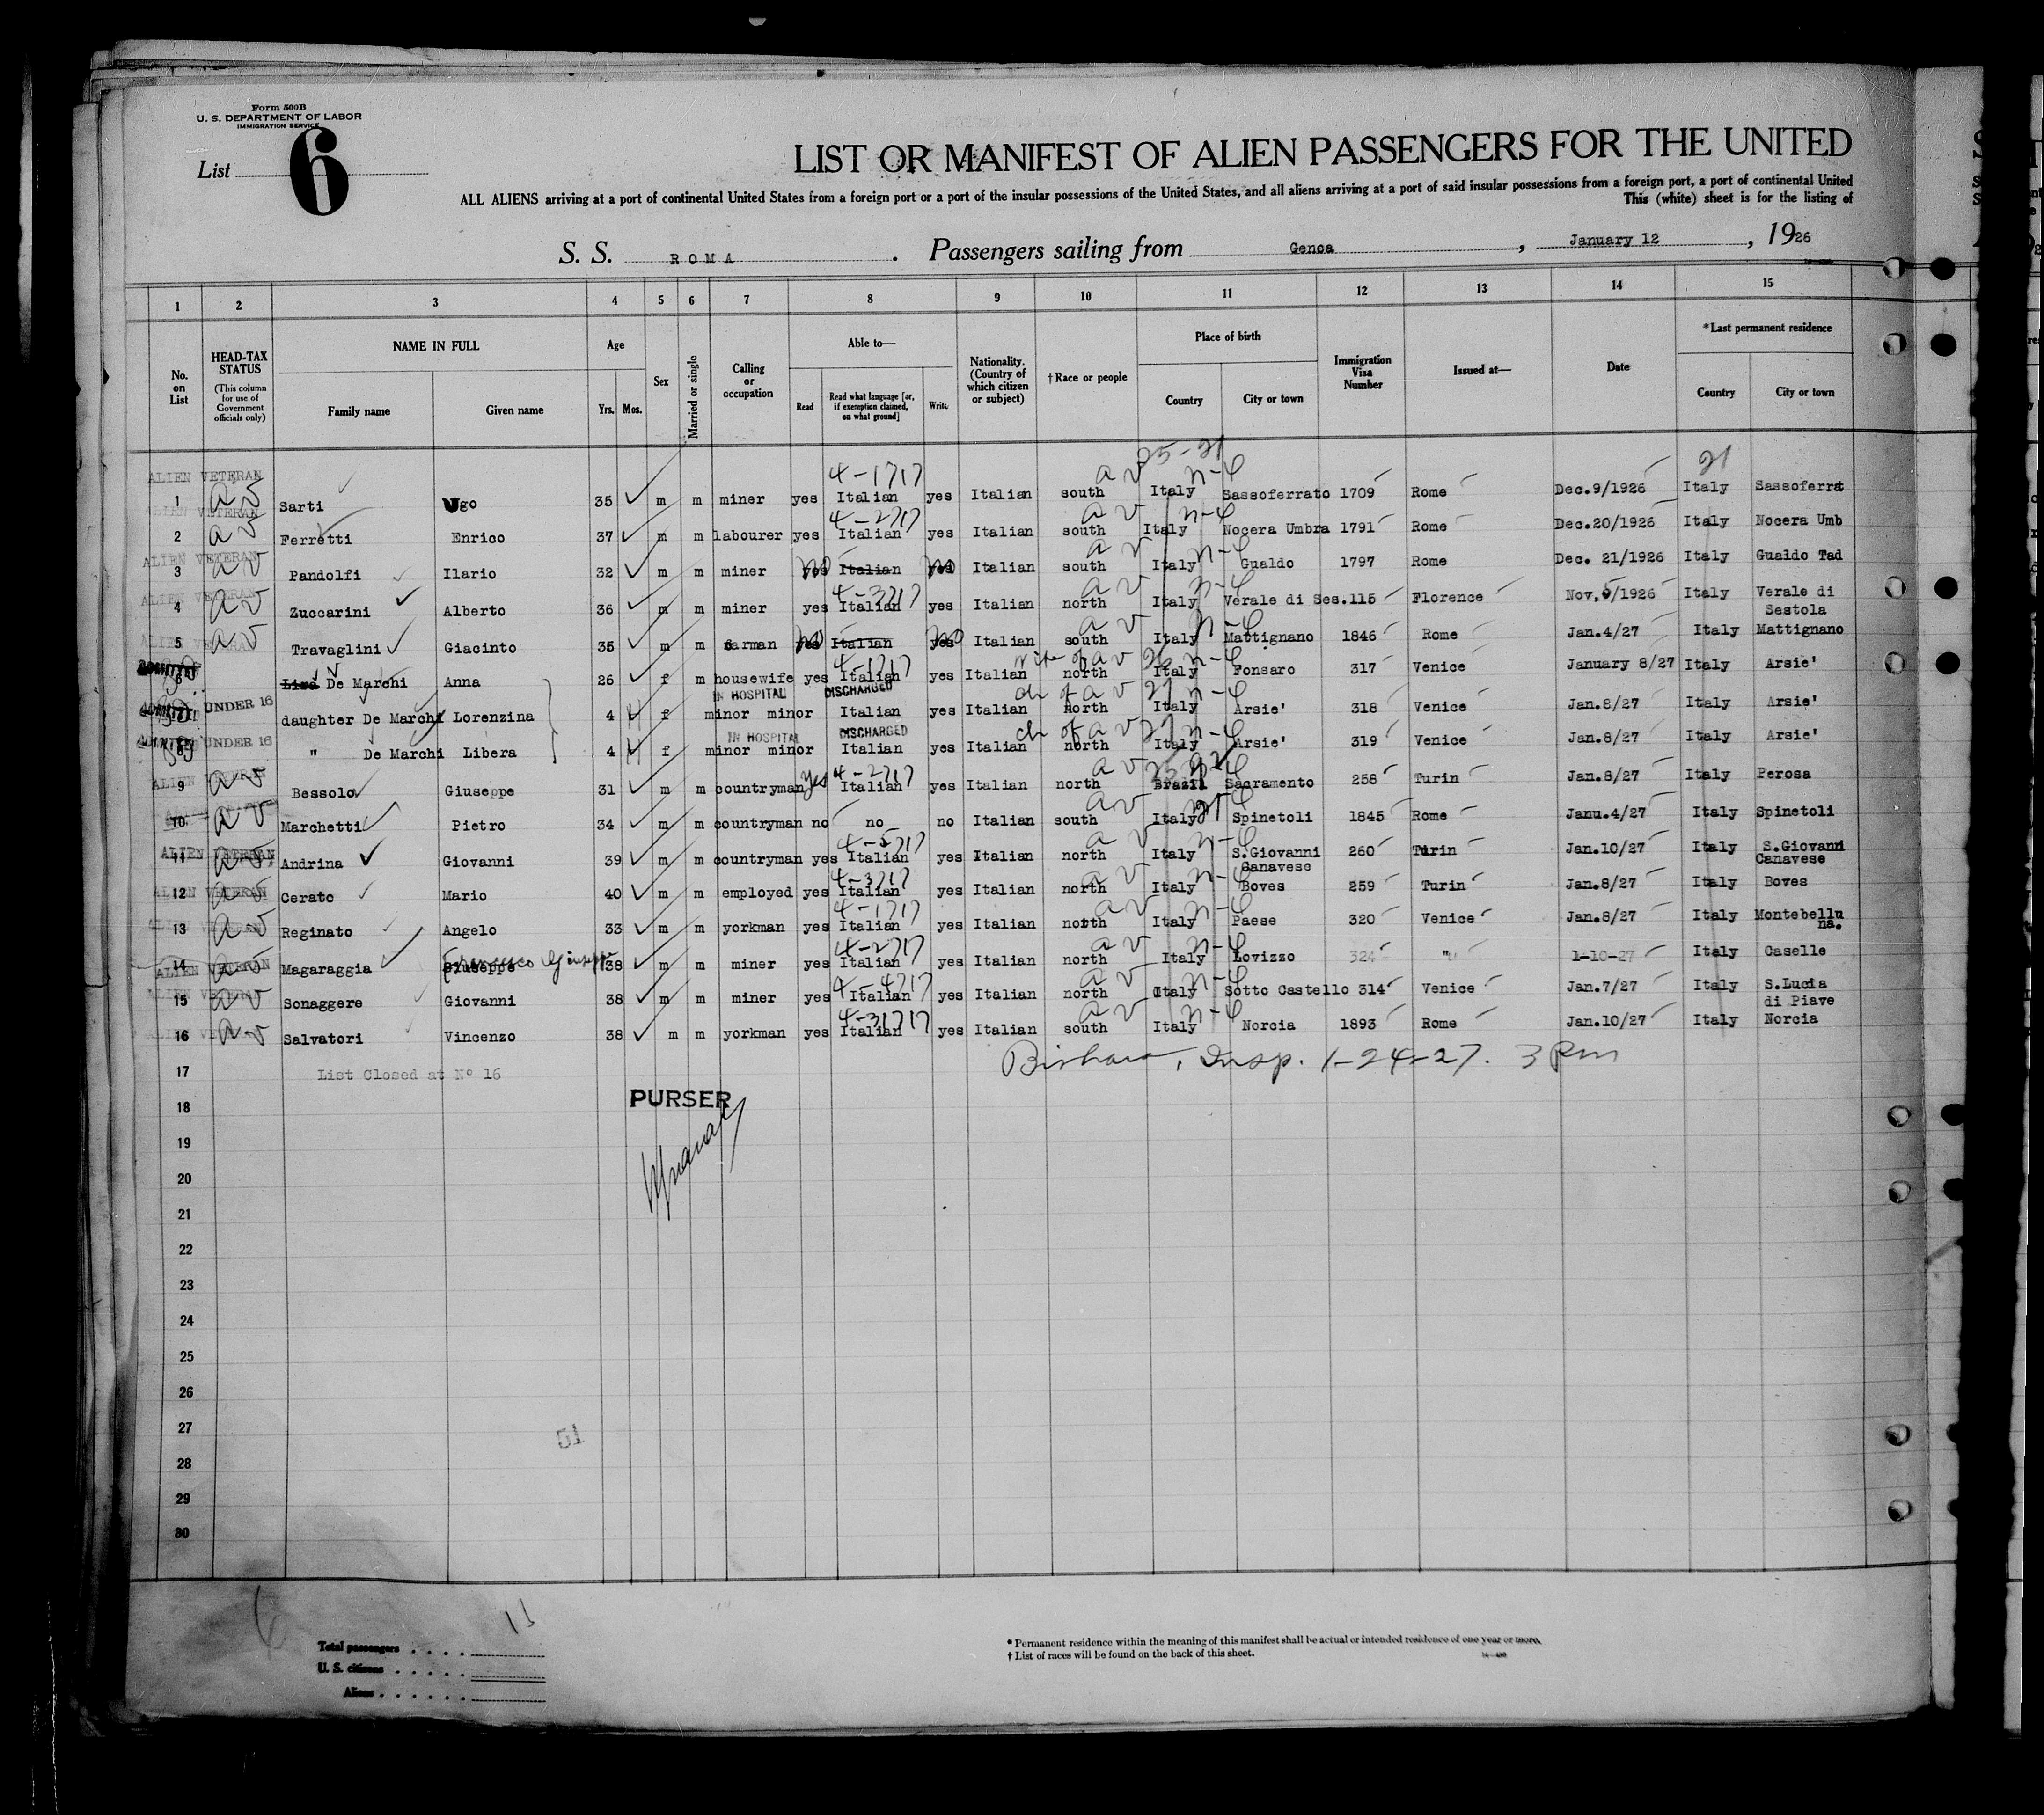 Form 500B
U. S. DEPARTMENT OF LABOR
IMMIGRATION SERVICE
List 6
LIST OR MANIFEST OF ALIEN PASSENGERS FOR THE UNITED
ALL ALIENS arriving at a port of continental United States from a foreign port or a port of the insular possessions of the United States, and all aliens arriving at a port of said insular possessions from a foreign port, a port of continental United
This (white) sheet is for the listing of
S. S. ROMA . Passengers sailing from Genoa , January 12 , 1926
1 2 3 4 5 6 7 8 9 10 11 12 13 14 15
No. on List
HEAD-TAX STATUS
(This column for use of Government officials only)
NAME IN FULL
Family name Given name
Age
Yrs. Mos.
Sex
Married or single
Calling or occupation
Able to—
Read
Read what language [or, if exemption claimed, on what ground]
Write
Nationality. (Country of which citizen or subject)
†Race or people
Place of birth
Country City or town
Immigration Visa Number
Issued at—
Date
*Last permanent residence
Country City or town
25-21
ALIEN VETERAN 4-1717 av n-4 21
1 av Sarti Ugo 35 m m miner yes Italian yes Italian south Italy Sassoferrato 1709 Rome Dec.9/1926 Italy Sassoferrat
ALIEN VETERAN 4-2717 av n-4
2 av Ferretti Enrico 37 m m labourer yes Italian yes Italian south Italy Nocera Umbra 1791 Rome Dec.20/1926 Italy Nocera Umb
ALIEN VETERAN av n-4
3 av Pandolfi Ilario 32 m m miner yes no Italian yes no Italian south Italy Gualdo 1797 Rome Dec. 21/1926 Italy Gualdo Tad
ALIEN VETERAN 4-3717 av n-4
4 av Zuccarini Alberto 36 m m miner yes Italian yes Italian north Italy Verale di Ses. 115 Florence Nov.5/1926 Italy Verale di Sestola
ALIEN VETERAN av n-4
5 av Travaglini Giacinto 35 m m carman yes no Italian yes no Italian south Italy Mattignano 1846 Rome Jan.4/27 Italy Mattignano
ADMITTED 4-1717 wife of av n-4
6 De Marchi Anna 26 f m housewife yes Italian yes Italian north Italy Fonsaro 317 Venice January 8/27 Italy Arsie'
ADMITTED UNDER 16 IN HOSPITAL DISCHARGED ch of av 21 n-4
7 daughter De Marchi Lorenzina 4 f minor minor Italian yes Italian north Italy Arsie' 318 Venice Jan.8/27 Italy Arsie'
ADMITTED UNDER 16 IN HOSPITAL DISCHARGED ch of av 21 n-4
8 " De Marchi Libera 4 f minor minor Italian yes Italian north Italy Arsie' 319 Venice Jan.8/27 Italy Arsie'
ALIEN VETERAN 4-2717 av
9 av Bessolo Giuseppe 31 m m countryman yes Italian yes Italian north Brazil Sacramento 258 Turin Jan.8/27 Italy Perosa
ALIEN VETERAN av 21
10 av Marchetti Pietro 34 m m countryman no no no Italian south Italy Spinetoli 1845 Rome Janu.4/27 Italy Spinetoli
ALIEN VETERAN 4-5717 av n-4
11 av Andrina Giovanni 39 m m countryman yes Italian yes Italian north Italy S.Giovanni Canavese 260 Turin Jan.10/27 Italy S.Giovanni Canavese
ALIEN VETERAN 4-3717 av n-4
12 av Cerato Mario 40 m m employed yes Italian yes Italian north Italy Boves 259 Turin Jan.8/27 Italy Boves
ALIEN VETERAN 4-1717 av n-4
13 av Reginato Angelo 33 m m yorkman yes Italian yes Italian north Italy Paese 320 Venice Jan.8/27 Italy Montebellu na.
ALIEN VETERAN 4-2717 av n-4
14 av Magaraggia Giuseppe Francesco Giuseppe 38 m m miner yes Italian yes Italian north Italy Lovizzo 324 " 1-10-27 Italy Caselle
ALIEN VETERAN 4-4717 av n-4
15 av Sonaggere Giovanni 38 m m miner yes Italian yes Italian north Italy Sotto Castello 314 Venice Jan.7/27 Italy S.Lucia di Piave
4-31717 av n-4
16 av Salvatori Vincenzo 38 m m yorkman yes Italian yes Italian south Italy Norcia 1893 Rome Jan.10/27 Italy Norcia
Insp. 1-24-27. 3 Pm
17 List Closed at Nº 16
18 PURSER
19
20
21
22
23
24
25
26
27
51
28
29
30
6
11
Total passengers
U. S. citizens
Aliens
* Permanent residence within the meaning of this manifest shall be actual or intended residence of one year or more.
† List of races will be found on the back of this sheet.